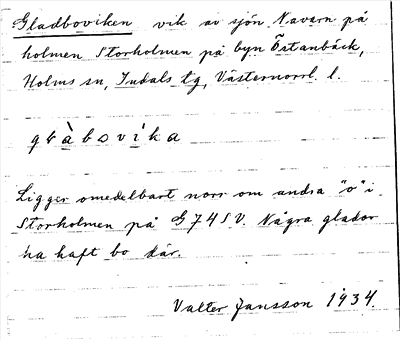 Gladboviken vik av sjön Navarn på
holmen Storholmen på byn Östanbäck,
Holms sn, Indals tg, Västernorrl. l.
Ligger omedelbart norr om andra "o" i
Storholmen på G74SV. Några glador
ha haft bo där.
Valter Jansson 1934.